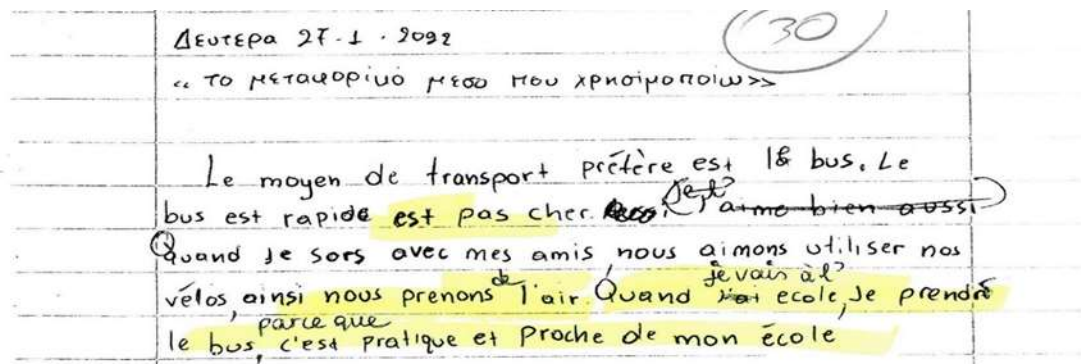 Δευτερα 27.1.2022
30
« το μεταφορικό μεσο που χρησιμοποιω»
Le moyen de transport préfère est le bus. Le
bus est rapide est pas cher. Je t' aime bien aussi
Quand je sors avec mes amis, nous aimons utiliser nos
de je vais à l'
vélos, ainsi nous prenons l'air. Quand ecole, je prendre
parce que
le bus, c'est pratique et proche de mon école